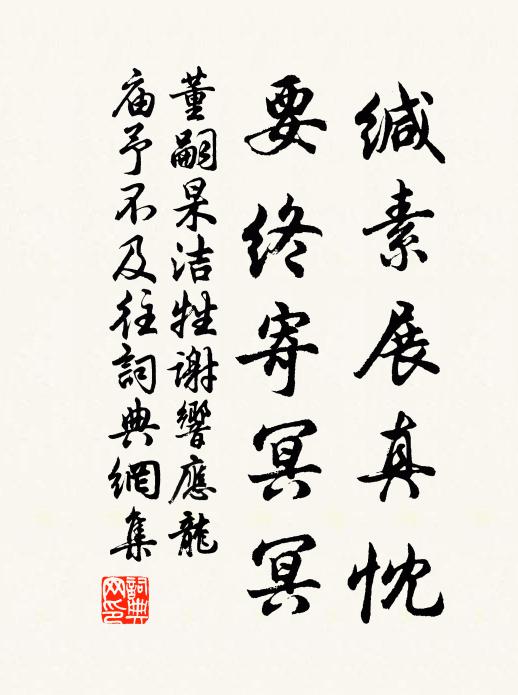 缄素展真忱
要终寄冥冥
董嗣杲洁牲谢響應龍
庙予不及往詞典網集
詞典网印